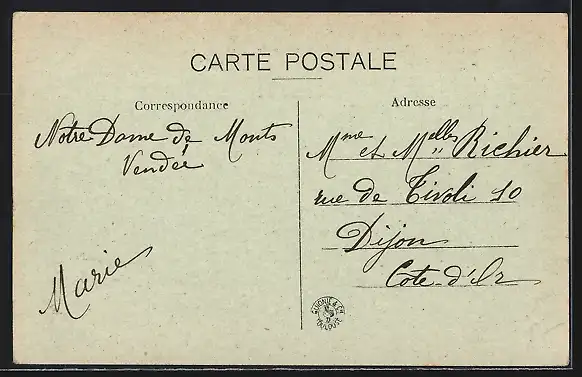 CARTE POSTALE
Correspondance
Notre Dame de Monts
Vendée
Marie
Adresse
Mme et Melles Richier
rue de Tivoli 10
Dijon
Cote-d'Or
TOULOUSE